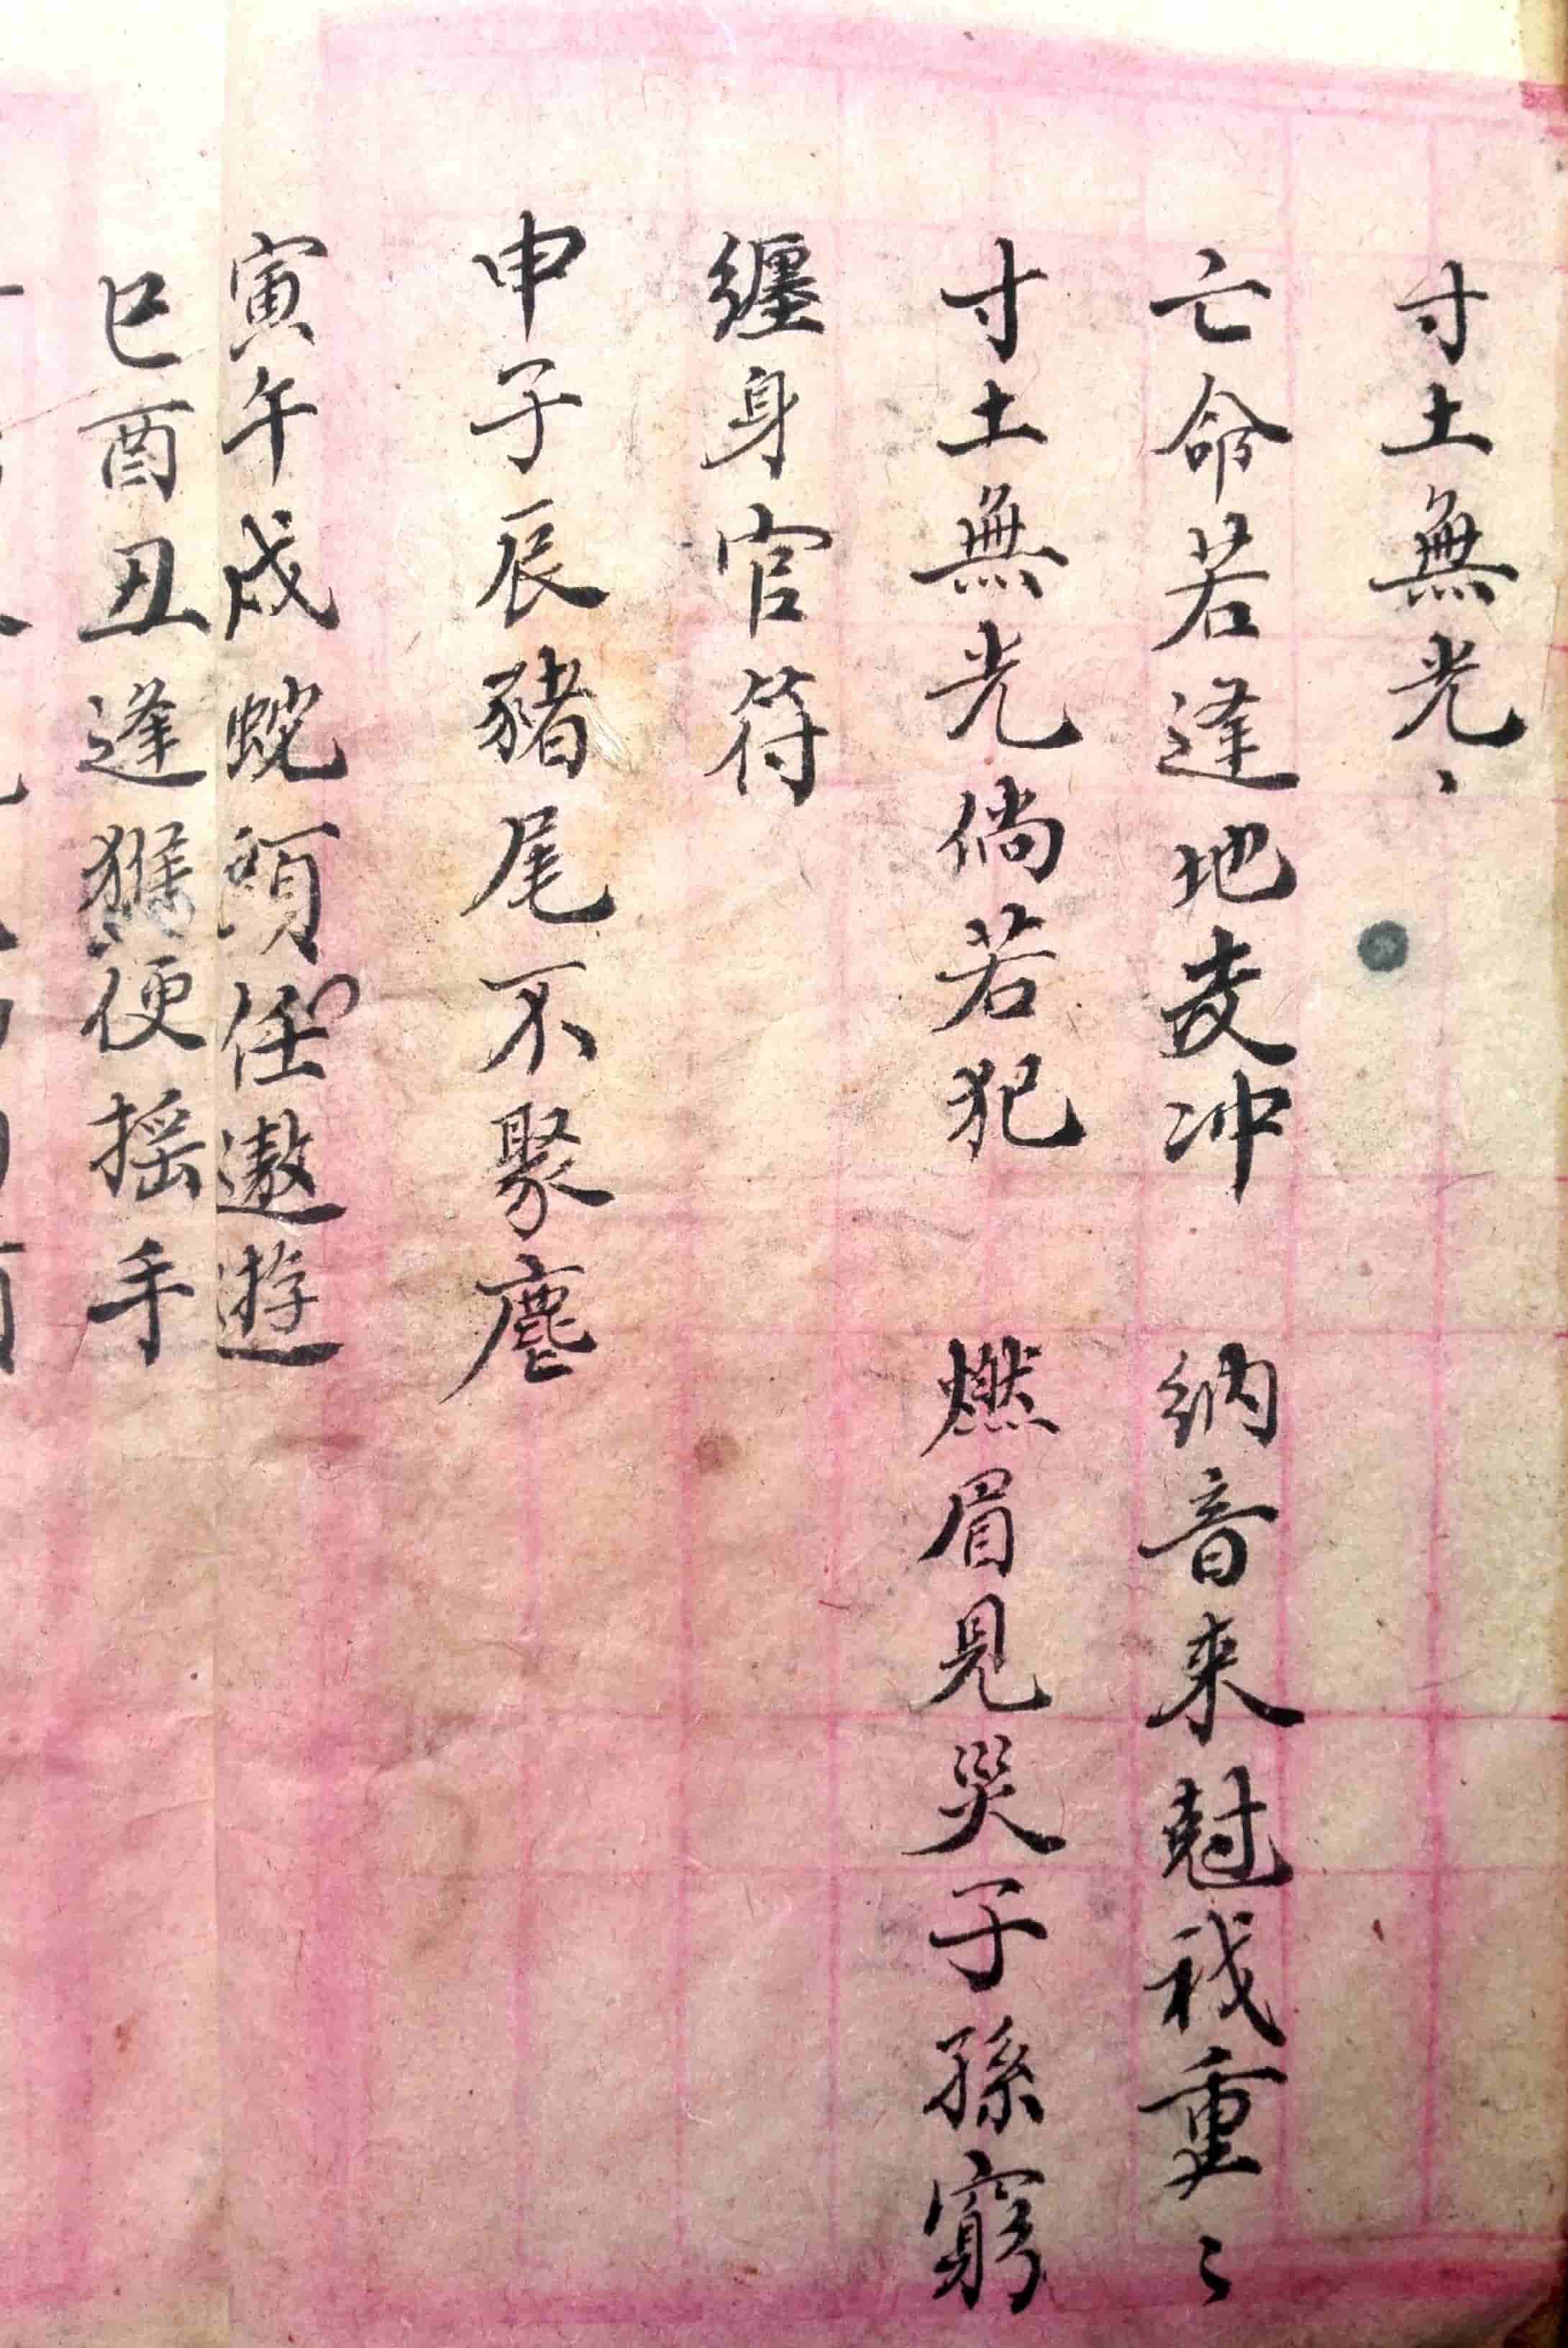 寸土無光、
亡命若逢地支冲 納音来尅祋重〻
寸土無光倘若犯 燃眉見災子孫窮
纏身官符
申子辰豬尾不聚塵
寅午戌蛇頭任遨遊
巳酉丑逢猴便搖手